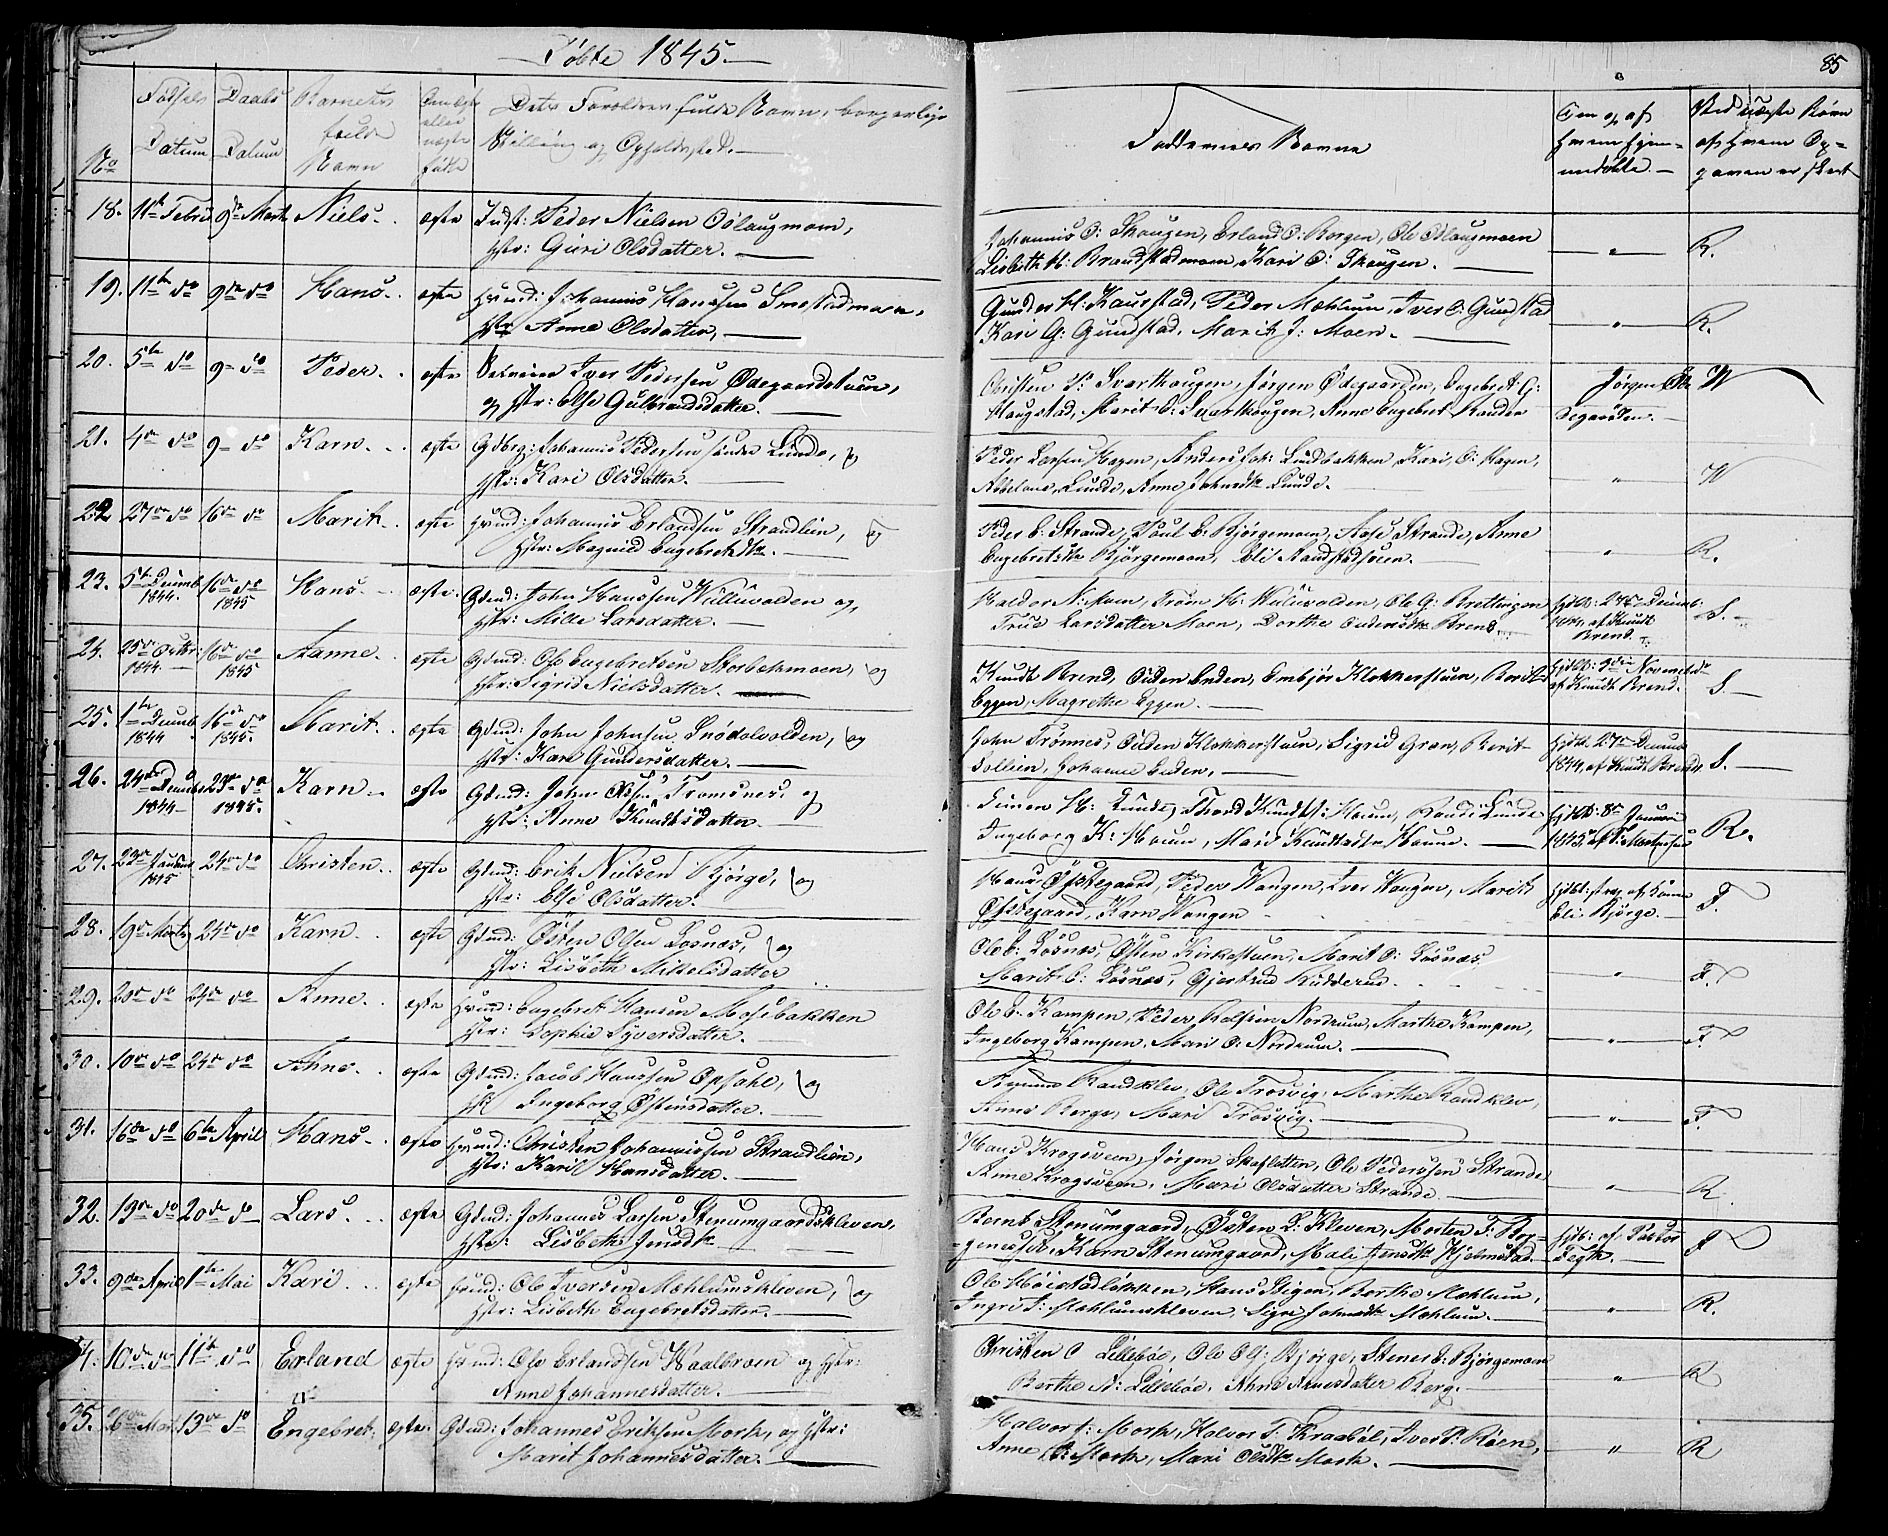 Døbte 1845.
85
No
Fødsels Datum
Daabs Datum
Barnets fulde Navn
Om ægte eller uægte fødte
Dets Forældres fulde Navn, borgerlige
Stilling og Opholdssted.
Faddernes Navne
Om og af hvem hjemmedøbte.
Ved uægte Børn af hvem Opgaven er skeet
18. 11te Febr 9de Marts Niels ægte Indst: Peder Nielsen Oslaugmoen,
Hstr: Guri Olsdatter.
Johannis O: Skaugen, Erland O: Borgen, Ole Oslaugmoen
Lisbeth H: Brandstadmoen, Kari O: Skaugen. " R.
19. 11te do 9de do Hans ægte Hmd: Johannis Hanssen Smestadmoen,
Hstr Anne Olsdatter,
Gunder H: Kaurstad, Peder Mæhlum, Iver O: Gunstad
Kari G: Gundstad, Marit J: Moen. " R.
20. 5te do 9 do Peder ægte Iver Pedersen Ødegaardstuen,
og Hstr: Else Gulbrandsdatter.
Christen P: Svarthaugen, Jørgen Ødegaarden, Engebret G:
Haugstad, Marit O: Svarthaugen, Anne Engebret Randen
Jørgen Ødegaarden. W
21. 4de do 9 do Karn ægte Gdbrg: Johannis Pedersen søndre Lunde, og
Hstr: Kari Olsdatter.
Peder Larsen Hagen, Anders Joh: Lundbakken, Kari O: Hagen,
Lunde, Anne Johnsdtr Lunde. " W
22 27de do 16de do Marith ægte Hmd: Johannis Erlandsen Strandlien, og
Hstr: Magnild Engebretsdtr.
Peder E: Strande, Poul E: Bjørgemoen, Aase Strande, Anne
Engebretsdtr Bjørgemoen, Eli Sandstadstuen. " R.
23. 5te Decmb 1844. 16de do 1845 Hans ægte Gdmd: John Hanssen Willuvolden og,
Hstr: Mille Larsdatter.
Haldor N: Moen, Trøen H: Willuvolden, Ole G: Brettingen
True Larsdatter Moen, Dorthe Oudensdtr Brend.
hjdbt: 24de Decmb: 1844 af Knudt Brend. S.
24. 25de Octbr: 1844 16de do 1845 Aanne ægte Gdmd: Ole Engebretsen Storbekmoen, og
Hstr: Sigrid Nielsdatter.
Knudt Brend, Ouden Enden, Embjør Klokkerstuen, Berit
Eggen, Magrethe Eggen.
hjdbt: 3die Novembr af Knudt Brend. S.
25. 1te Decmb 1844 16de do 1845. Marit ægte Gdmd: John Johnsen Snødolvolden, og
Hstr: Kari Gundersdatter.
John Trønnes, Ouden Klokkerstuen, Sigrid Græn, Berit
Sollien, Johanne Enden,
hjdbt. 27de Decmb 1844, af Knudt Brend. S.
26. 24de Decmb 1844 23de do 1845. Karn ægte Gdmd: John Olsen Tromsnes, og
Hstr: Anne Knudtsdatter.
Simen H: Lunde, Thord Knudts: Hoeun, Randi Lunde
Ingeborg K: Hoeun, Mari Knudtsdtr Hoeun.
hjdbt: 8de Januari 1845 af P: Mortensen R.
27. 22de Januar 1845 24de do Christen ægte Gdmd: Erik Nielsen Bjørge, og
Hstr: Else Olsdatter.
Hans Øfstegaard, Peder Wangen, Iver Wangen, Marith
Øfstegaard, Karn Wangen
hjdbt: strax af Konen Eli Bjørge. F.
28. 19de Marts 24de do Karn ægte Gdmd: Østen Olsen Losnæs, og
Hstr: Lisbeth Mikkelsdatter
Ole E: Losnæs, Østen Kirkestuen, Marit O: Losnæs
Marit O: Losnæs, Gjertrud Rudderud. " F.
29. 20de do 24de do Anne ægte Hmd: Engebret Hansen Mosebakken
Hstr: Sophie Syversdatter.
Ole E. Kampen, Peder Rolfsen Nordrum, Marthe Kampen,
Ingeborg Kampen, Mari O: Nordrum. " F.
30. 10de do 24de do Ahne ægte Gdmd: Jacob Hanssen Opsahl, og
Hstr Ingeborg Østensdatter.
Randklev, Ole Trosvig, Marthe Randklev,
Anne Berge, Mari Trosvig. " F.
31. 16de do 6te April Hans ægte Hmd: Christen Johannissen Strandlien,
Hstr: Kari Hansdatter.
Hans Krogsveen, Jørgen Skafletten, Ole Pederssen Strande
Anne Krogsveen, Mari Olsdatter Strande. " R.
32. 19de do 20de do Lars ægte Gdmd: Johannes Larsen Stenumgaardskleven,
Hstr: Lisbeth Jensdtr
Bernt Stenumgaard, Øysten L: Kleven, Morten F: Borgenuset, Karn Stenumgaard, Mali Jensdtr Hjelmstad.
hjdb: af Pastor Fegth. F
33. 9de April 1te Mai Kari ægte Hmd: Ole Iversen Mæhlumskleven, og
Hstr: Lisbeth Engebretsdatter.
Ole Høistadløkken, Hans Stigen, Berthe Mæhlum,
Ingri I: Mæhlumskleven, Sigri Johnsdtr Mæhlum. " R.
34. 10de do 11te do Erland ægte Hmd: Ole Erlandsen Waalbroen og Hstr:
Anne Johannesdatter.
Christen O Lillebøe, Ole Ol: Bjørge, Stener E: Bjørgemoen
Berthe N: Lillebøe, Ahne Arnesdatter Berg. " R
35. 26de Marts 13de do Engebret ægte Gdmd: Johannes Eriksen Mork, og Hstr:
Marit Johannesdatter.
Halvor J: Mork, Halvor T: Kraabøl, Iver P: Røen,
Anne J: Mork, Mari Olsdtr Mork. " R